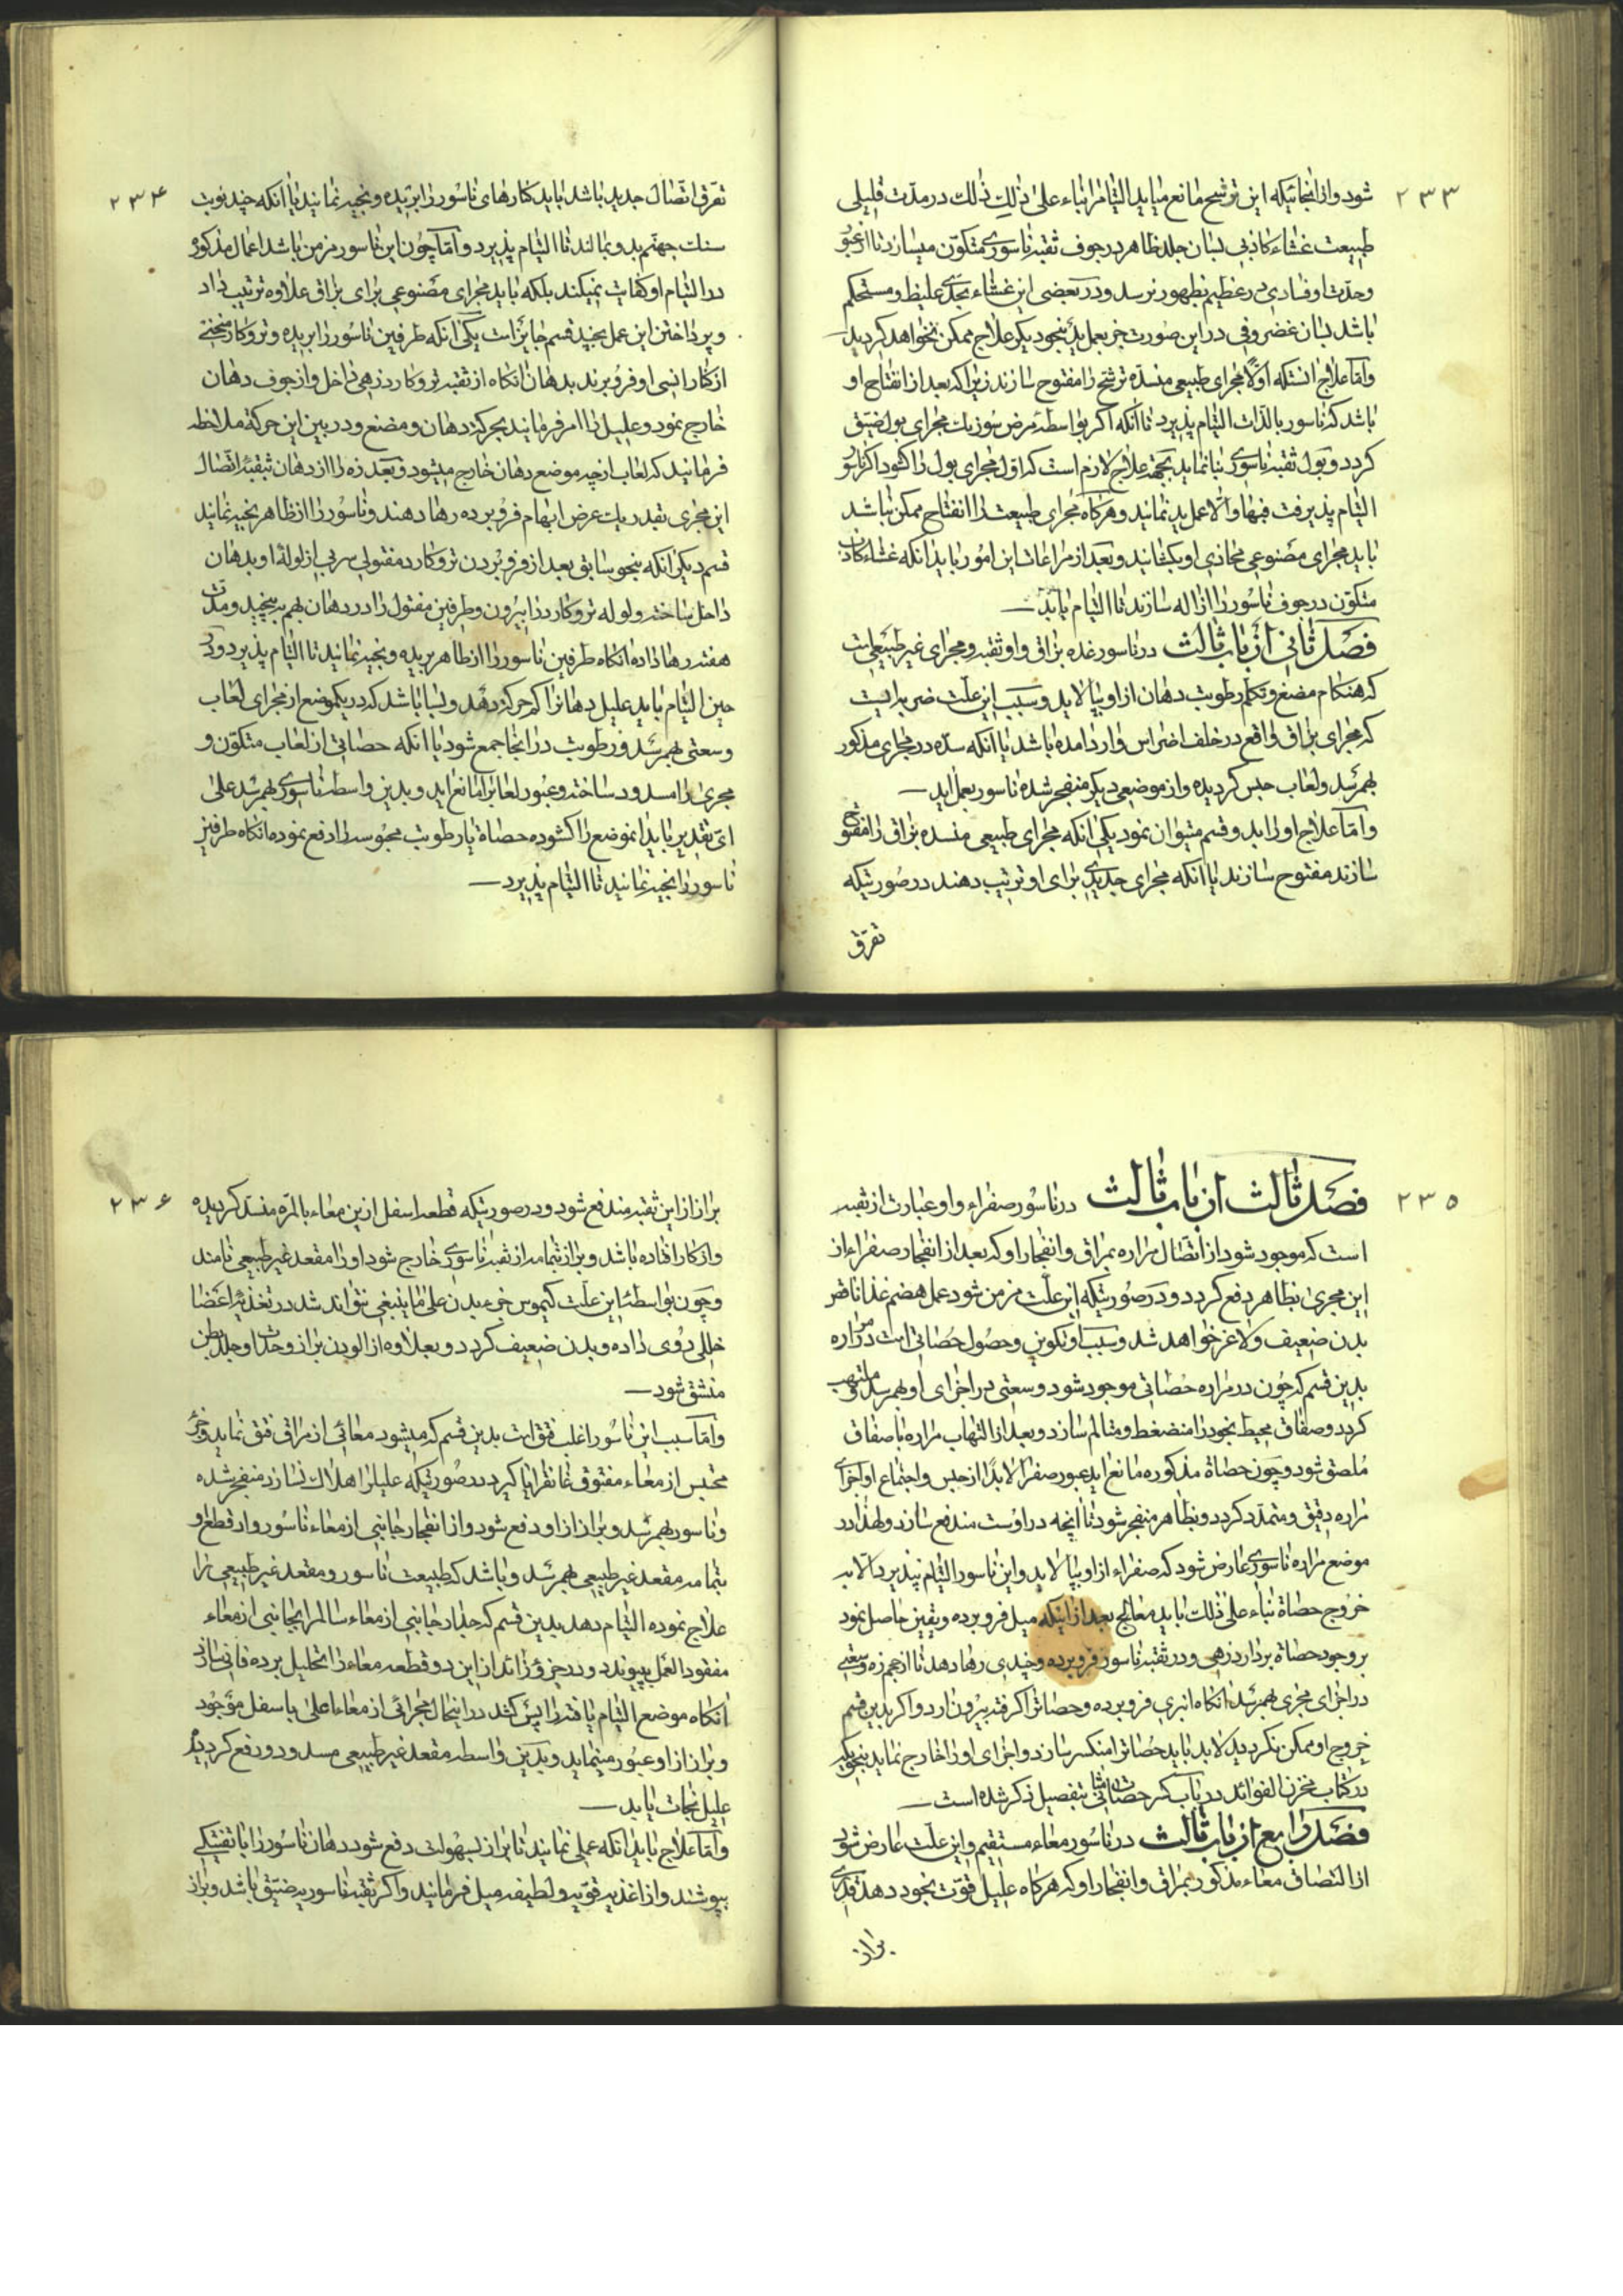 ۲۳۳
شود و از آنجائیکه این ترشح مانع میاید التیام را بناء علی ذلک در مدت قلیلی
طبیعت غشاء کاذبی بسان جلد ظاهر در جوف ثقبه ناسوری متکون میسازد تا از عبور
وحدت او فسادی عظیم بظهور نرسد و در بعضی این غشاء بحدی غلیظ و مستحکم
باشد بسان غضروفی در این صورت جز بعمل ید بنحو دیگر علاج ممکن نخواهد گردید
و اما علاج انستکه اولا مجرای طبیعی منسده ترشح را مفتوح سازند زیرا که بعد از انفتاح او
باشد که ناسور بالذات التیام پذیرد تا آنکه اگر بواسطه مرض سوزیات مجرای بول ضیق
گردد و بول ثقبه ناسوری بنا نماید بجهة علاج لازم است که اول مجرای بول را گشود اگر ناسور
التیام پذیرفت فبها و الا عمل ید نمایند و هرگاه مجرای طبیعت را انفتاح ممکن نباشد
باید مجرای مصنوعی محاذی او بگشایند و بعد از مراعات این امور باید آنکه غشاء کاذب
متکون در جوف ناسور را ازاله سازند تا التیام یابد
فصل ثانی از باب ثالث در ناسور غده بزاق و او ثقبه و مجرای غیر طبیعی است
که هنگام مضغ و تکلم رطوبت دهان از او بپالاید و سبب این علت ضربه ایست
که مجرای بزاق واقع در خلف اضراس وارد امده باشد یا آنکه سده در مجرای مذکور
بهم رسد و لعاب حبس گردیده و از موضعی دیگر منفجر شده ناسور بعمل اید
و اما علاج او را بدو قسم میتوان نمود یکی انکه مجرای طبیعی منسده بزاق را مفتوح
سازند مفتوح سازند یا آنکه مجرای جدیدی برای او ترتیب دهند در صورتیکه
تفرق
۲۳۴
تفرق اتصال جدید باشد باید کنارهای ناسور را بریده و بخیه نمایند یا آنکه چند نوبت
سنک جهنم بدو بمالند تا التیام پذیرد و اما چون این ناسور مزمن باشد اعمال مذکوره
در التیام او کفایت نمیکند بلکه باید مجرای مصنوعی برای بزاق علاوه ترتیب داد
و پرداختن این عمل بچند قسم جایز است یکی آنکه طرفین ناسور را بریده و تروکار منحنی
از کنار انسی او فرو برند بدهان انگاه از ثقبه تروکار زهی داخل و از جوف دهان
خارج نمود و علیل را امر فرمایند بحرکة دهان و مضغ و در بین این حرکة ملاحظه
فرمایند که لعاب از چه موضع دهان خارج میشود و بعد زه را از دهان بثقبه اتصال
این مجری بقدر یک عرض ابهام فرو برده رها دهند و ناسور را از ظاهر بخیه نمایند
قسم دیگر آنکه بنحو سابق بعد از فرو بردن تروکار د مفتولی سربی از لوله او بدهان
داخل ساخته و لوله تروکار را بیرون و طرفین مفتول را در دهان بهم بپیچید و مدت
هفته رها داده انگاه طرفین ناسور را از ظاهر بریده و بخیه نمایند تا التیام پذیرد و در
حین التیام باید علیل دهانرا کم حرکة دهد و بسا باشد که در یکموضع از مجرای لعاب
وسعتی بهم رسد و رطوبت در انجا جمع شود یا آنکه حصاتی از لعاب متکون و
مجری را مسدود ساخته و عبور لعابرا مانع اید و بدین واسطه ناسوری بهم رسد علی
ای تقدیر باید انموضع را گشوده حصاة یا رطوبت محبوسه را دفع نموده انگاه طرفین
ناسور را بخیه نمایند تا التیام پذیرد
۲۳۵
فصل ثالث از باب ثالث در ناسور صفراء و او عبارت از ثقبه
است که موجود شود از اتصال مراره بمراق و انفجار او که بعد از انفجار صفراء از
این مجری بظاهر دفع گردد و در صورتیکه این علت مزمن شود عمل هضم غذا ناقص
بدن ضعیف و لاغر خواهد شد و سبب او تکوین و حصول حصاتی است در مراره
بدین قسم که چون در مراره حصاتی موجود شود وسعتی در اجزای او بهم رسد و ملتهب
گردد و صفاق محیط بخود را منضغط و متالم سازد و بعد از التهاب مراره با صفاق
ملصق شود و چون حصاة مذکوره مانع اید عبور صفرا لابد از حبس و اجتماع او اجزای
مراره رقیق و متمدد گردد و بظاهر منفجر شود تا آنچه در اوست مندفع سازد ولهذا در
موضع مراره ناسوری عارض شود که صفراء از او بپالاید و این ناسور التیام نپذیرد الا به
خروج حصاة بناء علی ذلک باید معالج بعد از اینکه میل فرو برده و یقین حاصل نمود
بر وجود حصاة بردارد زهی و در ثقبه ناسور فرو برده و چندی رها دهد تا از حجم زه وسعتی
در اجزای مجری بهم رسد انگاه انبری فرو برده و حصاترا گرفته بیرون ارد و اگر بدین قسم
خروج او ممکن نگردید لابد باید حصاترا منکسر سازد و اجزای او را خارج نماید بنحویکه
در کتاب مخزن الفوائد در باب کسر حصاتی مثانه بتفصیل ذکر شده است
فصل رابع از باب ثالث در ناسور معاء مستقیم و این علت عارض شود
از التصاق معاء مذکور بمراق و انفجار او که هرگاه علیل قوت بخود دهد قدری
براز
۲۳۶
براز از این ثقبه مندفع شود و در صورتیکه قطعه اسفل از بن معاء بالمره منسد گردیده
و از کار افتاده باشد و براز بتمامه از ثقبه ناسوری خارج شود او را مقعد غیر طبیعی نامند
و چون بواسطه این علت کیموس جزء بدن علی ما ینبغی نتواند شد در تغذیه اعضا
خللی روی داده و بدن ضعیف گردد و بعلاوه از الودن براز وحدت او جلد بطن
منشق شود
و اما سبب این ناسور اغلب فتق است بدین قسم که میشود معائی از مراق فتق نماید و جزء
محتبس از معاء مفتوق غانغرایا گیرد در صورتیکه علیلرا هلاک نسازد منفجر شده
و ناسور بهم رسد و براز از او دفع شود و از انفجار جانبی از معاء ناسور و از قطع او
بتمامه مقعد غیر طبیعی بهم رسد و باشد که طبیعت ناسور و مقعد غیر طبیعی را
علاج نموده التیام دهد بدین قسم که جلد از جانبی از معاء سالم را بجانبی از معاء
مفقود العمل بپیوندد و در جزؤ زائد از این دو قطعه معاء را تحلیل برده فانی سازد
انگاه موضع التیام یافته را پس کشد در اینحال مجرائی از معاء اعلی باسفل موجود
و براز از او عبور مینماید و بدین واسطه مقعد غیر طبیعی مسدود و رفع گردیده
علیل نجات یابد
و اما علاج باید آنکه عملی نمایند تا براز بسهولت دفع شود دهان ناسور را با تفتیکی
بپوشند و از اغذیه قویه و لطیفه میل فرمایند و اگر ثقبه ناسوریه ضیق باشد و براز